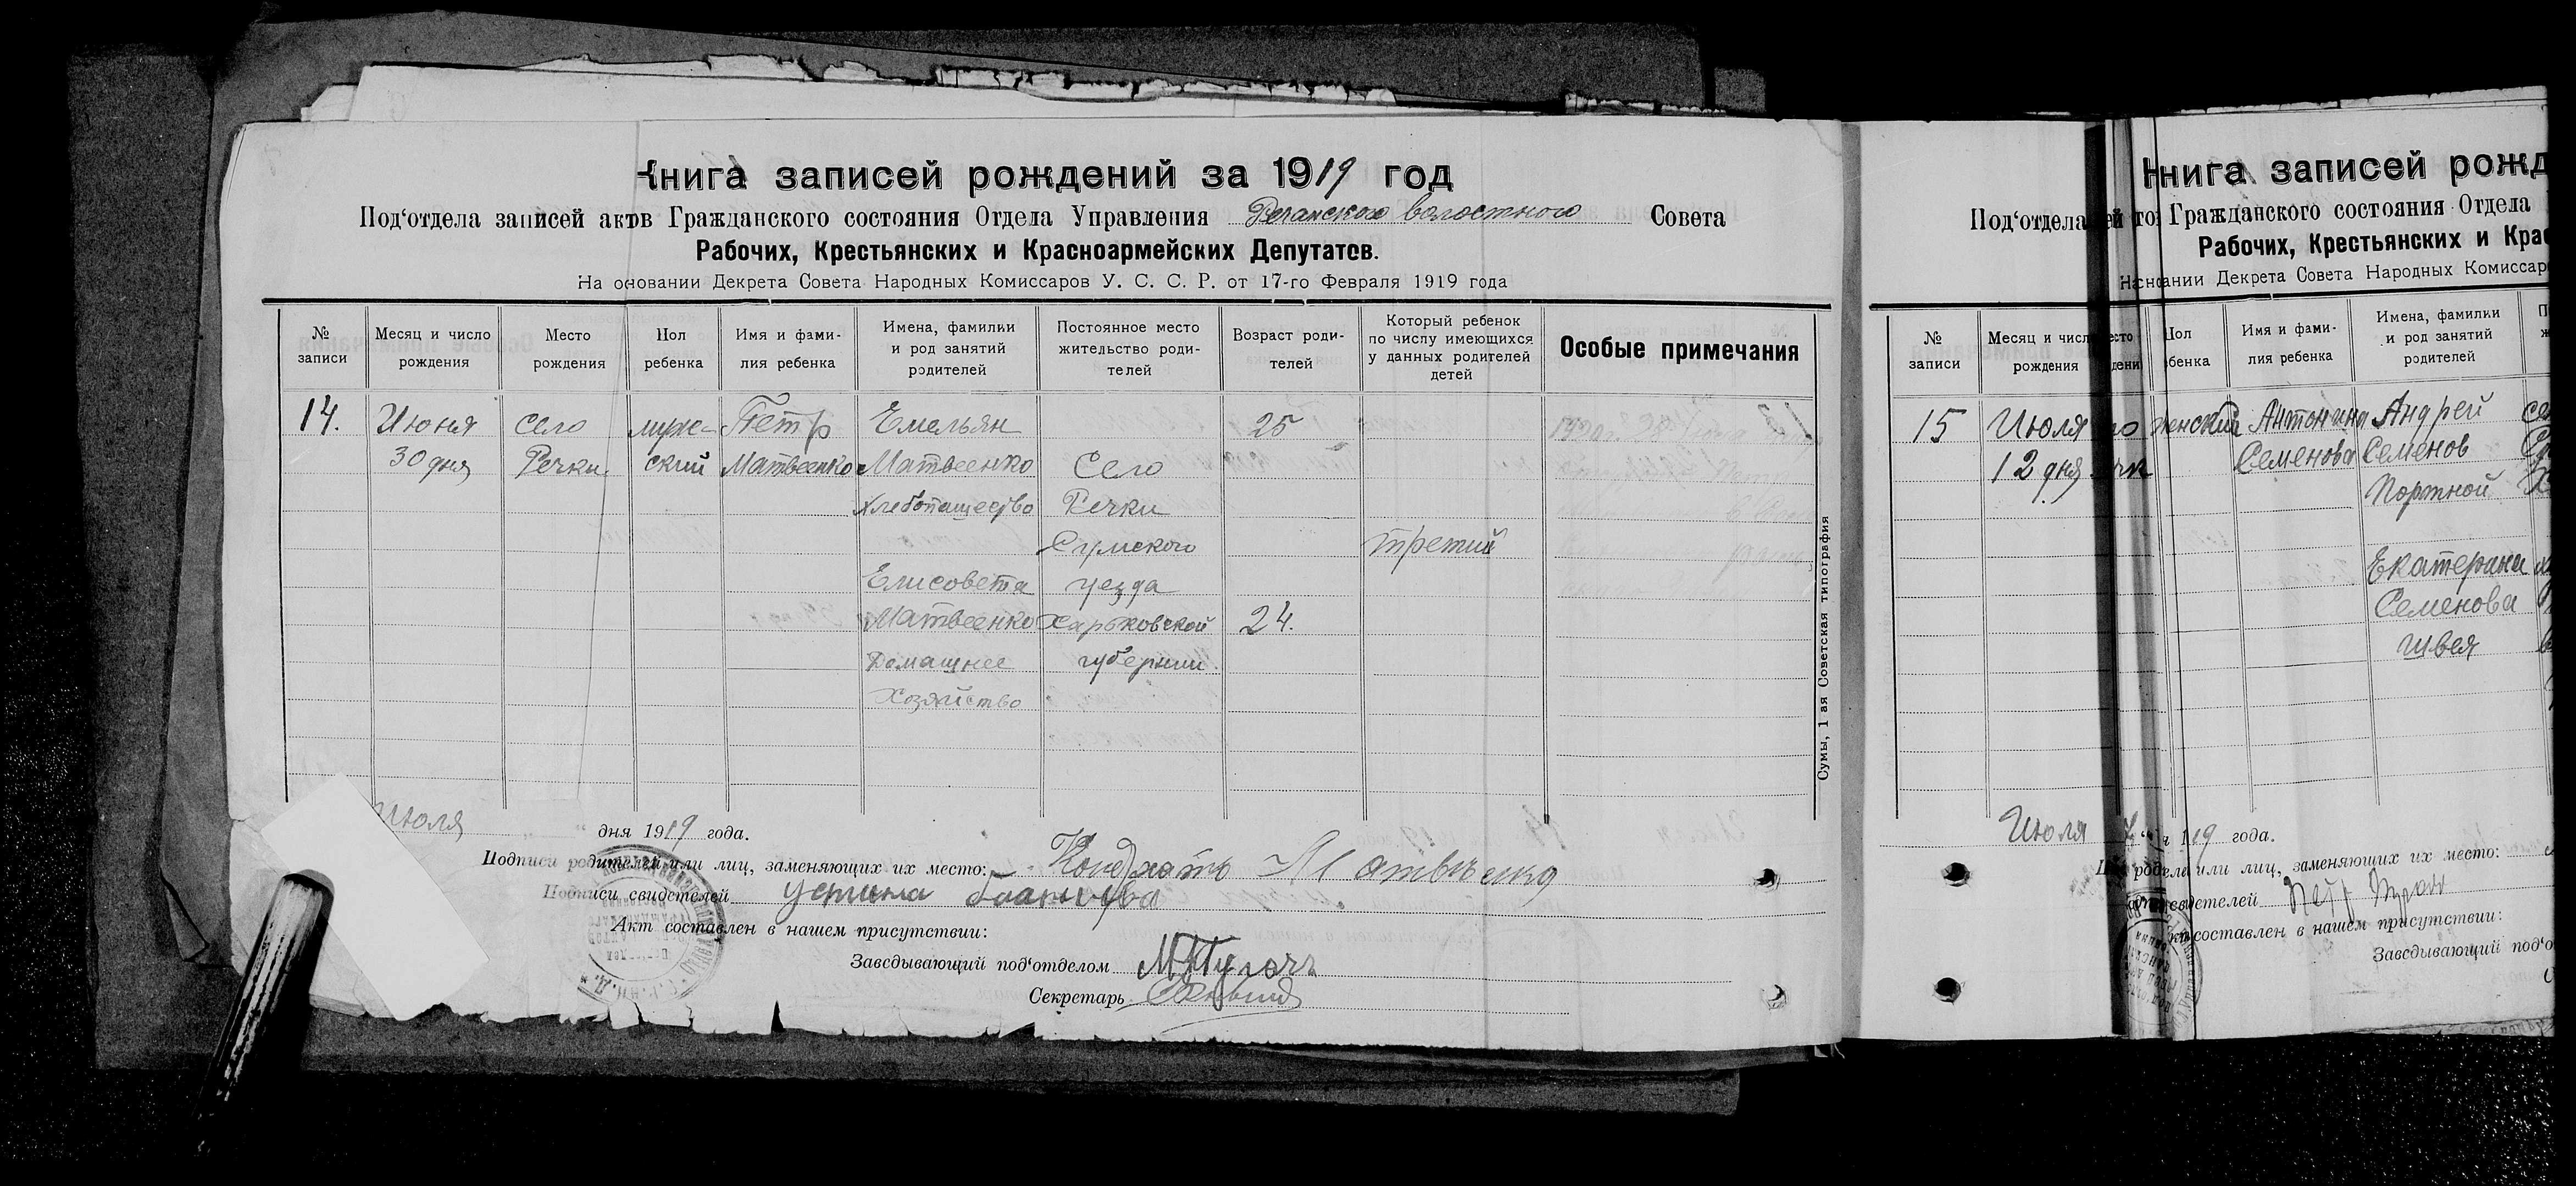 Книга записей рождений за 1919 год
Под'отдела записей актв Гражданского состояния Отдела Управления Речанского волостного Совета
Рабочих, Крестьянских и Красноармейских Депутатов.
На основании Декрета Совета Народных Комиссаров У. С. С. Р. от 17-го Февраля 1919 года
№ записи
Месяц и число рождения
Место рождения
Пол ребенка
Имя и фамилия ребенка
Имена, фамилии и род занятий родителей
Постоянное место жительство родителей
Возраст родителей
Который ребенок по числу имеющихся у данных родителей детей
Особые примечания
14. Июня село муже- Петр Емельян 25
30 дня Речки ский Матвеенко Матвеенко Село
Хлебопашество Речки
Сумского третий
Елисовета уезда
Матвеенко Харьковской 24.
Домашнее губернии.
Хозяйство
Июля дня 1919 года.
Подписи родителей или лиц, заменяющих их место: Кондратъ Матвѣенко
Подписи свидетелей Устина
Акт составлен в нашем присутствии:
Заведывающий под'отделом М Пугачъ
Секретарь
Сумы, 1 ая Советская типография
Книга записей рожд
Под'отдела Гражданского состояния Отдела
Рабочих, Крестьянских и Крас
Декрета Совета Народных Комиссар
№ записи
Месяц и число рождения
Имя и фамилия ребенка
Имена, фамилии и род занятий родителей
15 Июля женский Антонина Андрей
12 дня Семенова Семенов
Портной
Екатерина
Семенова
швея
Июля 19 года.
или лиц, заменяющих их место:
Петр
составлен в нашем присутствии:
Заведывающий под'о